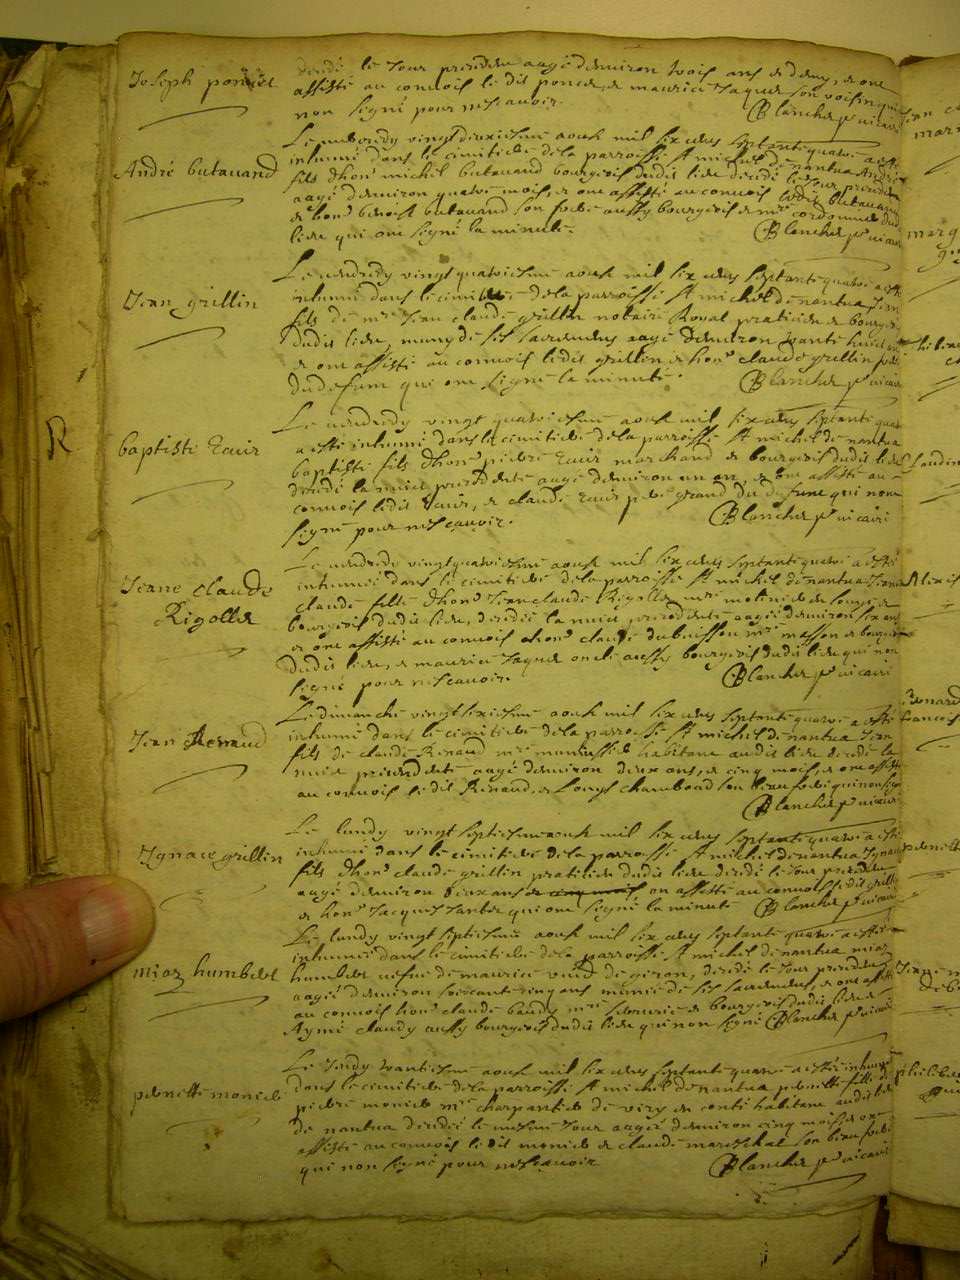 Joseph poncet
decedé le Jour precedent aagé denviron trois ans et demy, et ont
assisté au convois le dit poncet, et maurice Jaquet son voisin qui
non signé pour ne scavoir.
Blanchet pr vicaire
André butavand
Le mercredy vingt deuxiesme aoust mil six cens septante quatre a esté
inhumé dans le cimitiere de la parroisse St michel de nantua André
fils dhonr michel butavand bourgeois dudit lieu decedé le Jour precedent
aagé denviron quatre mois, et ont assisté au convois ledit butavand
et honr benoist butavand son frere aussy bourgeois et mre cordonnier dud
lieu qui ont signé la minute.
Blanchet pr vicaire
Jean grillin
Le vendredy vingt quatriesme aoust mil six cens septante quatre a esté
inhumé dans le cimitiere de la parroisse St michel de nantua Jean
fils de mre Jean claude grillin notaire Royal praticien et bourgeois
dudit lieu, muny de ses sacremens aagé denviron trante huict ans
et ont assisté au convois ledit grillin et honr claude grillin frere
du defunt qui ont signé la minute.
Blanchet pr vicaire
R
baptiste
Le vendredy vingt quatriesme aoust mil six cens septante quatre
a esté inhumé dans le cimitiere de la parroisse St michel de nantua
baptiste fils dhonr pierre marchand et bourgeois dudit lieu
decedé la nuict precedente aagé denviron un an, et ont assisté au
convois ledit et claude pere grand du defunt qui nont
signé pour ne scavoir.
Blanchet pr vicaire
Jeanne claude
Rigollet
Le vendredy vingt quatriesme aoust mil six cens septante quatre a esté
inhumée dans le cimitiere de la parroisse St michel de nantua Jeanne
claude fille dhonr Jean claude Rigollet mre et
bourgeois dudit lieu, decedée la nuict precedente aagée denviron six ans
et ont assisté au convois honr claude dubuisson mre masson et bourgeois
dudit lieu, et maurice Jaquet oncle aussy bourgeois dudit lieu qui non
signé pour ne scavoir.
Blanchet pr vicaire
Jean Renaud
Le dimanche vingt sixiesme aoust mil six cens septante quatre a esté
inhumé dans le cimitiere de la parroisse St michel de nantua Jean
fils de claude Renaud mre habitant audit lieu decedé la
nuict precedente aagé denviron deux ans, et cinq mois, et ont assisté
au convois ledit Renaud, et Louys chambard son beau frere qui non signé
Blanchet pr vicaire
Ignace grillin
Le lundy vingt septiesme aoust mil six cens septante quatre a esté
inhumé dans le cimitiere de la parroisse St michel de nantua Ignace
fils dhonr claude grillin praticien dudit lieu decedé le Jour precedent
aagé denviron deux ans et cinq mois ont assisté au convois ledit grillin
et honr Jacques qui ont signé la minute
Blanchet pr vicaire
humbert
Le lundy vingt septiesme aoust mil six cens septante quatre a esté
inhumée dans le cimitiere de la parroisse St michel de nantua
humbert vefue de maurice de giron, decedé le Jour precedent
aagée denviron soixante cinq ans munie de ses sacremens, et ont assisté
au convois honr claude baudy mre serrurier et bourgeois dudit lieu et
Aymé claudy aussy bourgeois dudit lieu qui non signé
Blanchet pr vicaire
pernette monier
Le Jeudy trantiesme aoust mil six cens septante quatre a esté inhumée
dans le cimitiere de la parroisse St michel de nantua pernette fille de
pierre monier mre charpentier de habitant audit lieu
de nantua decedée le mesme Jour aagée denviron cinq mois et ont
assisté au convois ledit monier et claude mareschal son beau frere
qui non signé pour ne scavoir
Blanchet pr vicaire